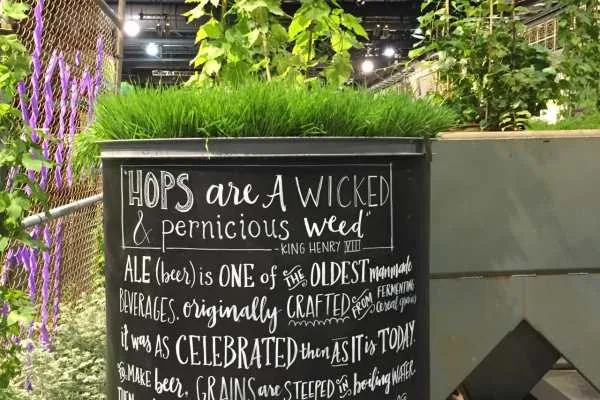 "HOPS are A WICKED
& pernicious weed"
-KING HENRY VIII
ALE (beer) is ONE of THE OLDEST manmade
BEVERAGES. originally CRAFTED FROM FERMENTING cereal grains
it was AS CELEBRATED then AS IT is TODAY.
TO MAKE beer, GRAINS are STEEPED in boiling WATER.